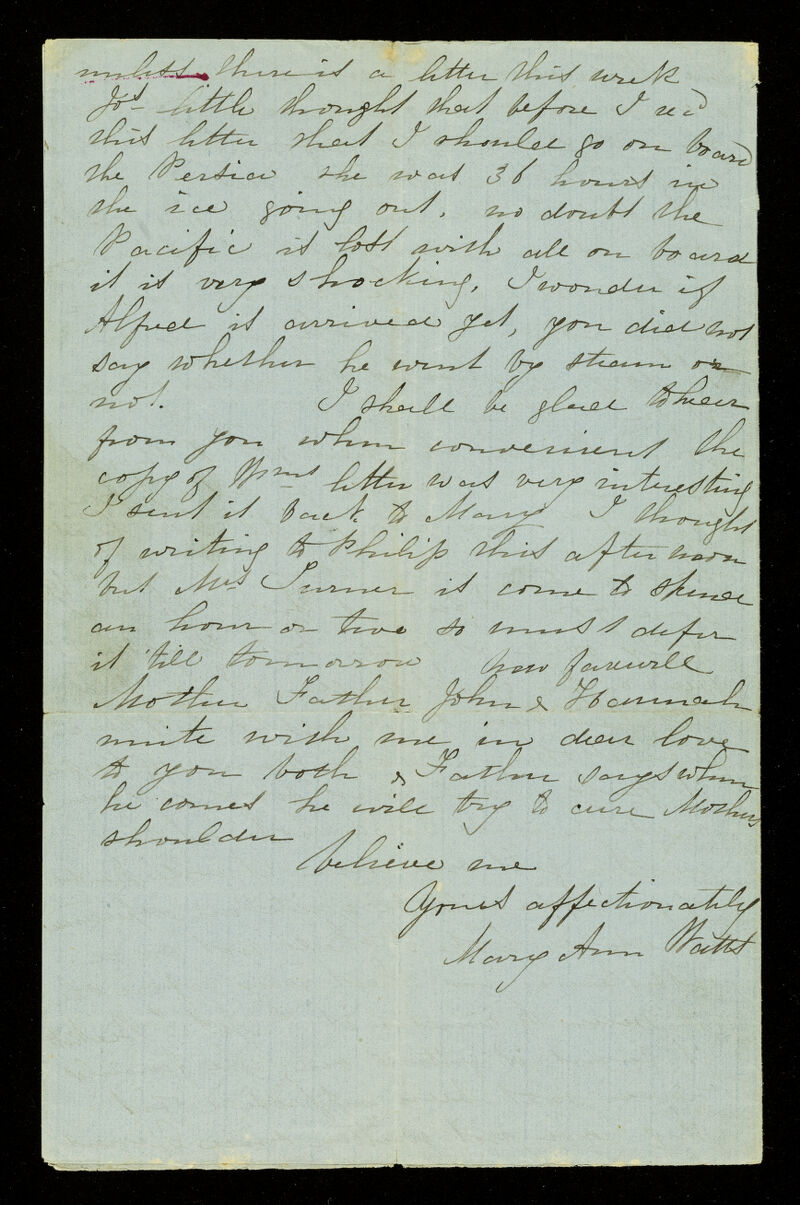 unless there is a letter this week
Jos little thought that before I recd
this letter that I should go on board
the Persia she was 36 hours in
the ice going out, no doubt the
Pacific is lost with all on board
it is very shocking, I wonder if
Alfred is arrived yet, you did not
say whether he went by steam or
not. I shall be glad to hear
from you when convenient the
copy of Wms letter was very interesting
I sent it back to Mary I thought
of writing to Philip this afternoon
but Mrs Turner is come to spend
an hour or two so must defer
it 'till tomorrow now farewell
Mother Father John & Hannah
unite with me in dear love
to you both & Father says when
he comes he will try to cure Mothers
shoulder
believe me
Yours affectionately
Mary Ann Watts